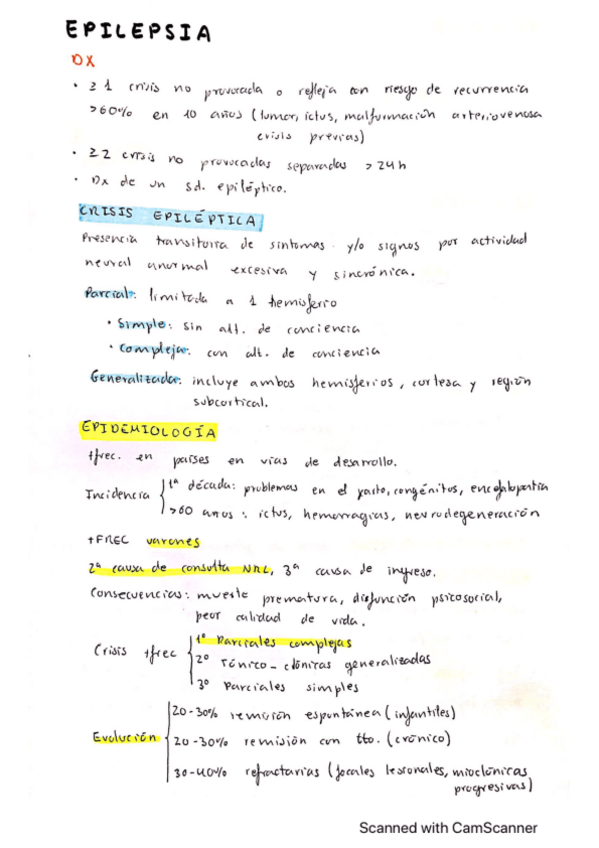 EPILEPSIA
DX
• ≥ 1 crisis no provocada o refleja con riesgo de recurrencia
>60% en 10 años (tumor, ictus, malformación arteriovenosa
crisis previas)
• ≥2 crisis no provocadas separadas > 24h
• Dx de un sd. epiléptico.
CRISIS EPILÉPTICA
Presencia transitoria de sintomas y/o signos por actividad
neural anormal excesiva y sincrónica.
Parcial: limitada a 1 hemisferio
• Simple: sin alt. de conciencia
• Compleja: con alt. de conciencia
Generalizada: incluye ambos hemisferios, corteza y región
subcortical.
EPIDEMIOLOGÍA
+frec. en países en vias de desarrollo.
Incidencia
1ª década: problemas en el parto, congénitos, encefalopatía
>60 años: ictus, hemorragias, neurodegeneración
+FREC varones
2ª causa de consulta NRL, 3ª causa de ingreso.
Consecuencias: muerte prematura, disfunción psicosocial,
peor calidad de vida.
Crisis +frec
1º Parciales complejas
2º Tónico-clónicas generalizadas
3º Parciales simples
Evolución
20-30% remisión espontánea (infantiles)
20-30% remisión con tto. (crónico)
30-40% refractarias (focales lesionales, mioclónicas
progresivas)
Scanned with CamScanner